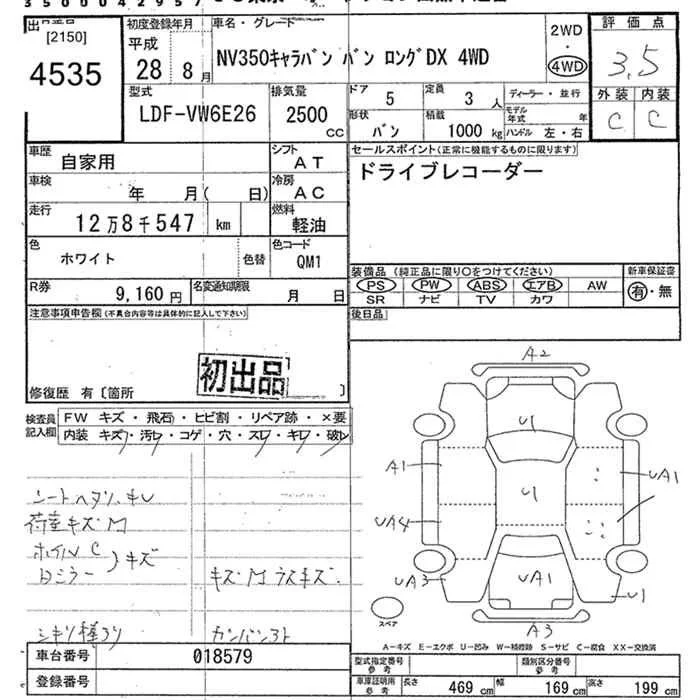 3 5 0 0 0 4 2 9 5 7
出品番号 [2150] 4535
初度登録年月 平成 28年 8月
車名・グレード NV350キャラバン バン ロングDX 4WD
2WD・4WD
評価点 3.5
外装 C 内装 C
型式 LDF-VW6E26
排気量 2500 CC
ドア 5
定員 3人
ディーラー・並行
形状 バン
積載 1000 kg
モデル年式 年
ハンドル 左・右
車歴 自家用
シフト AT
セールスポイント(正常に機能するものに限ります)
ドライブレコーダー
車検 年 月( 日)
冷房 AC
走行 12万8千547 km
燃料 軽油
色 ホワイト 色替
色コード QM1
R券 9,160円
名変通知期限 月 日
装備品 (純正品に限り○をつけてください) 新車保証書
PS PW ABS エアB AW 有・無
SR ナビ TV カワ
注意事項申告欄(不具合内容等は具体的に記入して下さい)
後日品
初出品
修復歴 有〔箇所 〕
検査員記入欄 FW キズ・飛石・ヒビ割・リペア跡・×要
内装 キズ・汚レ・コゲ・穴・スレ・キレ・破レ
シートヘタリ、キレ
荷室キズM
ホイルC
キズ
キズM ラスキズ.
A2
U1
A1
UA1
U1
UA4
UA3
UA1
U1
A3
スペア
A-キズ E-エクボ U-凹み W-補修跡 S-サビ C-腐食 XX-交換済
車台番号 018579
登録番号
型式指定番号 参考
類別区分番号 参考
車庫証明用 参考 長さ 469 cm 幅 169 cm 高さ 199 cm